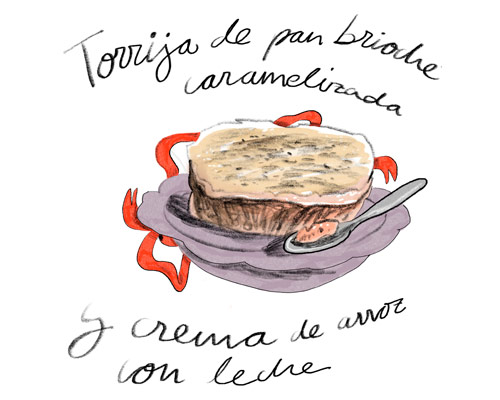 Torrija de pan brioche
caramelizada
y crema de arroz
con leche